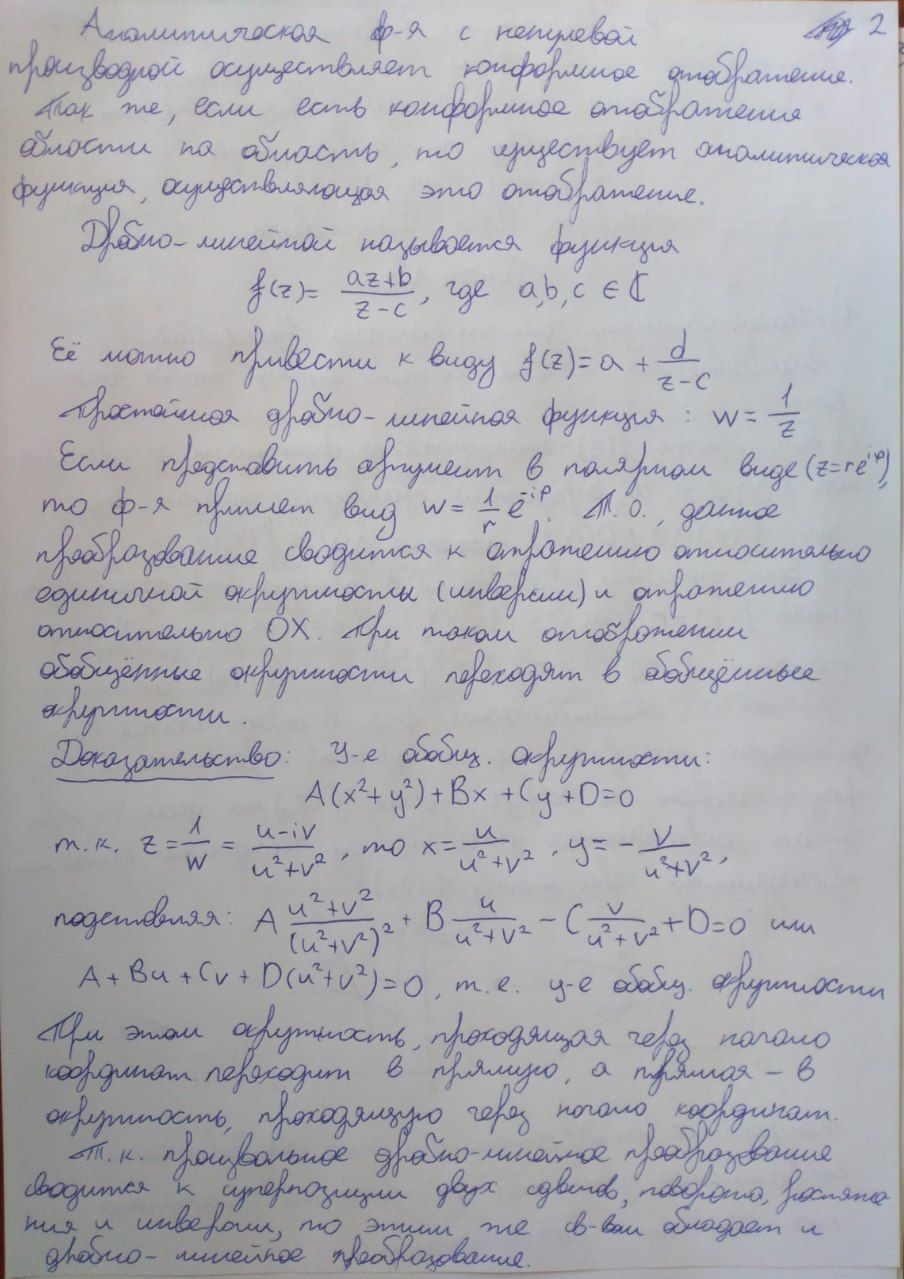 2
Аналитическая ф-я с ненулевой
производной осуществляет конформное отображение.
Так же, если есть конформное отображение
области на область, то существует аналитическая
функция, осуществляющая это отображение.
Дробно-линейной называется функция
f(z) = (az+b)/(z-c), где a,b,c ∈ ℂ
Её можно привести к виду f(z) = a + d/(z-c)
Простейшая дробно-линейная функция: w = 1/z
Если представить аргумент в полярном виде (z=re^{iφ}),
то ф-я примет вид w = 1/r e^{-iφ}. Т.о., данное
преобразование сводится к отражению относительно
единичной окружности (инверсии) и отражению
относительно OX. При таком отображении
обобщённые окружности переходят в обобщённые
окружности.
Доказательство: У-е обобщ. окружности:
A(x²+y²)+Bx+Cy+D=0
т.к. z = 1/w = (u-iv)/(u²+v²), то x = u/(u²+v²), y = - v/(u²+v²),
подставляя: A (u²+v²)/(u²+v²)² + B u/(u²+v²) - C v/(u²+v²) + D=0 или
A+Bu+Cv+D(u²+v²)=0, т.е. у-е обобщ. окружности
При этом окружность, проходящая через начало
координат переходит в прямую, а прямая – в
окружность, проходящую через начало координат.
Т.к. произвольное дробно-линейное преобразование
сводится к суперпозиции двух сдвигов, поворота, растяже
ния и инверсии, то этим же св-вом обладает и
дробно-линейное преобразование.